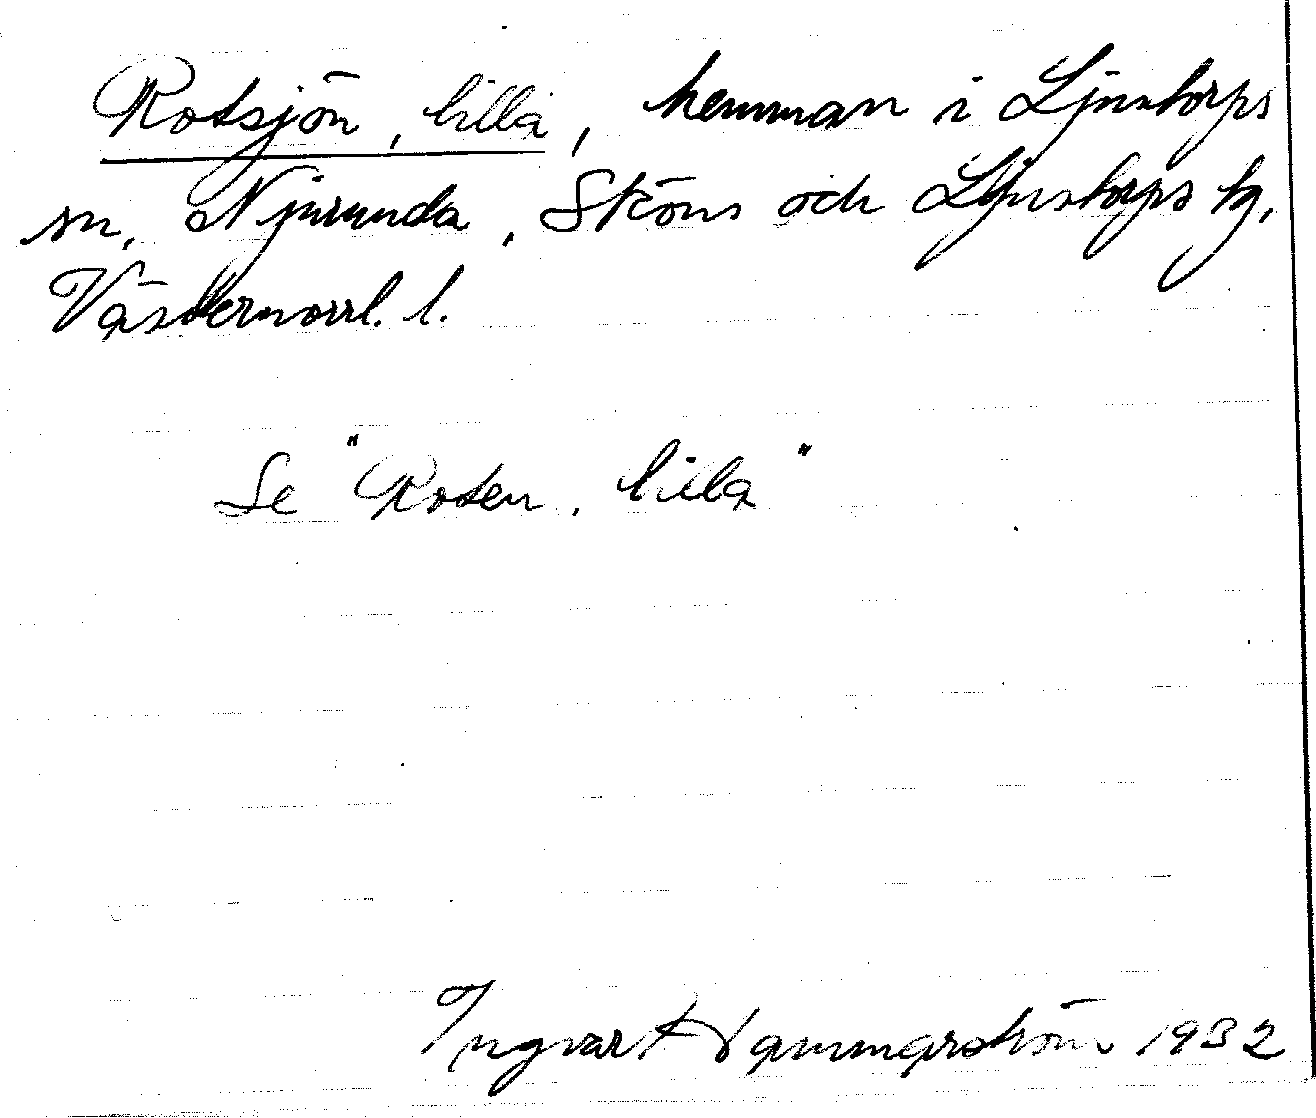 Rotsjön, lilla, hemman i Ljustorps
sn, Njurunda, Sköns och Ljustorps tg,
Västernorrl. l.
Se "Roten, lilla"
Ingvar Hammarström 1932